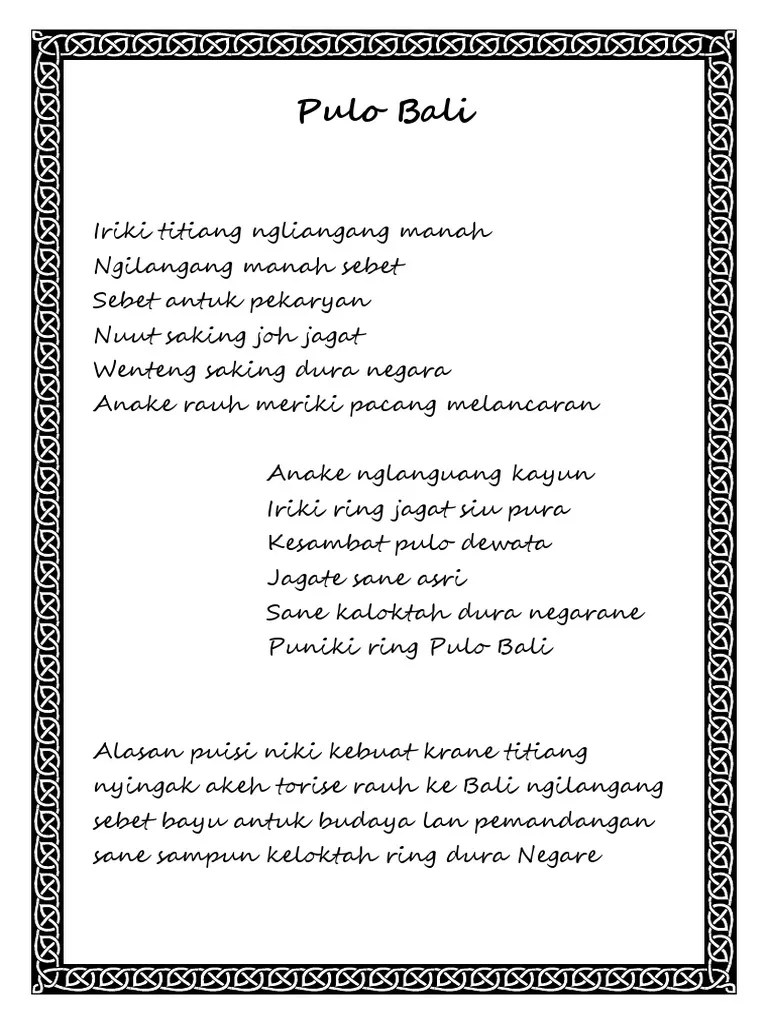 Pulo Bali
Iriki titiang ngliangang manah
Ngilangang manah sebet
Sebet antuk pekaryan
Nuut saking joh jagat
Wenteng saking dura negara
Anake rauh meriki pacang melancaran
Anake nglanguang kayun
Iriki ring jagat siu pura
Kesambat pulo dewata
Jagate sane asri
Sane kaloktah dura negarane
Puniki ring Pulo Bali
Alasan puisi niki kebuat krane titiang
nyingak akeh torise rauh ke Bali ngilangang
sebet bayu antuk budaya lan pemandangan
sane sampun keloktah ring dura Negare